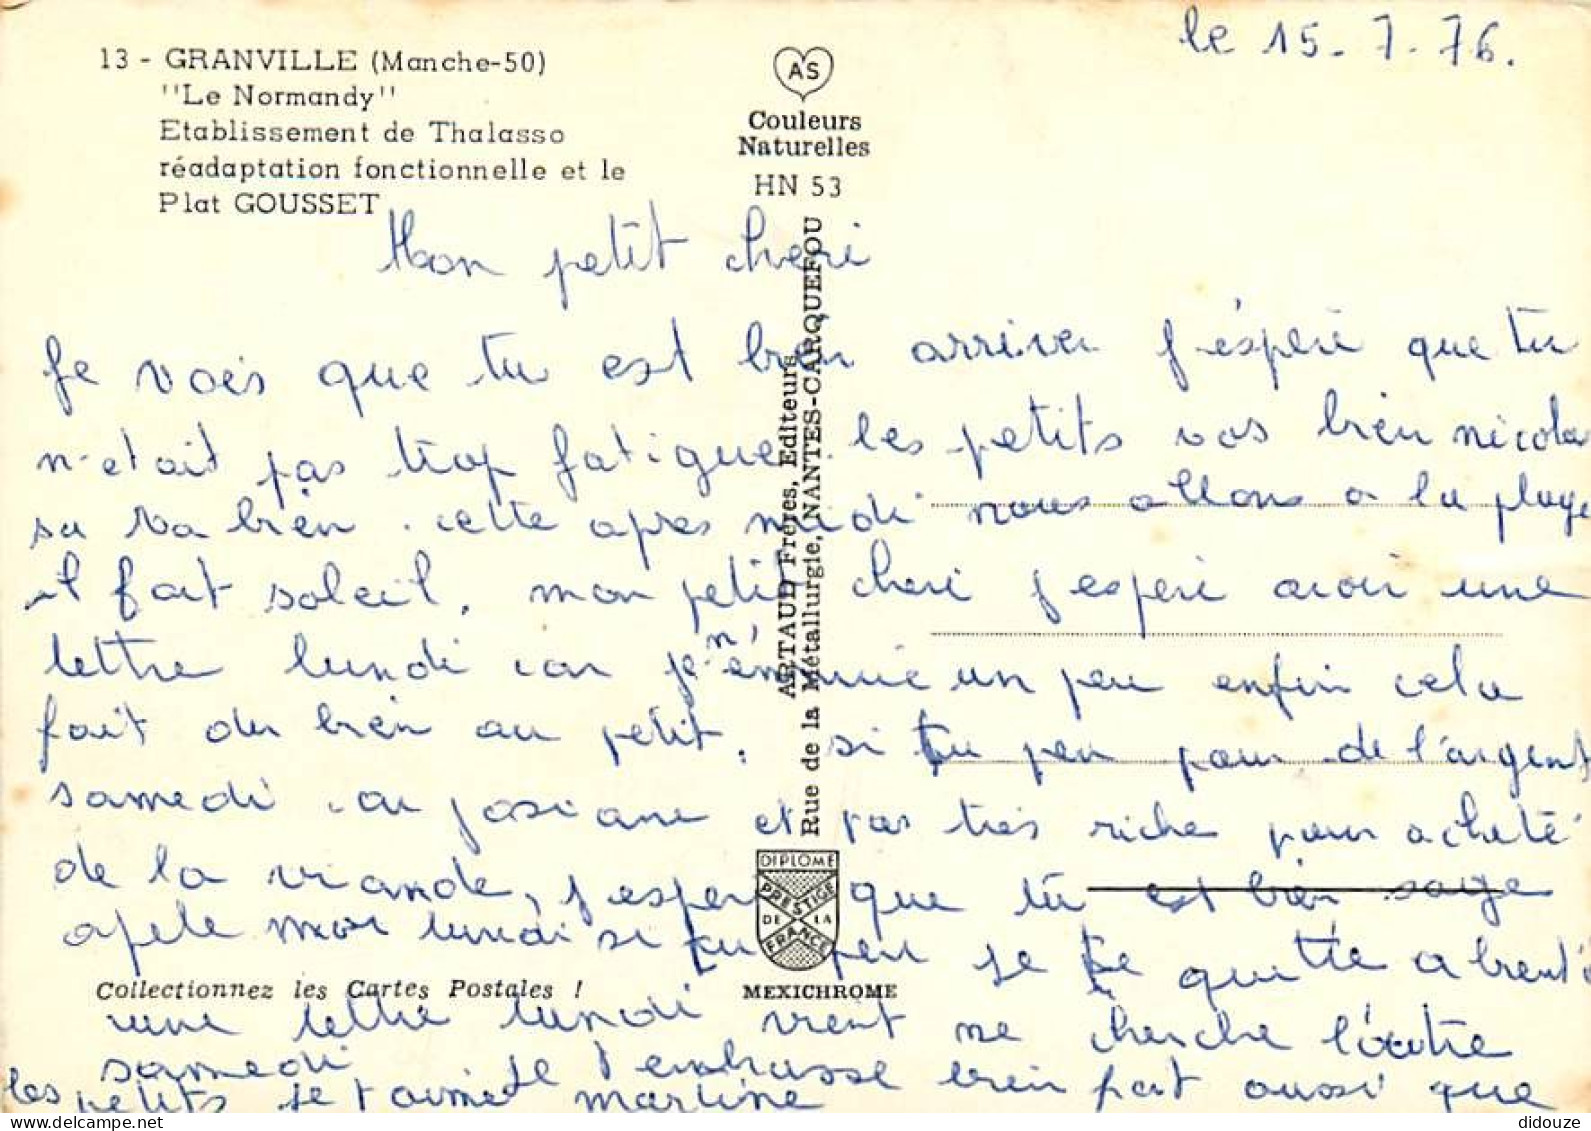 le 15-7-76.
13 - GRANVILLE (Manche-50)
"Le Normandy"
Etablissement de Thalasso
réadaptation fonctionnelle et le
Plat GOUSSET
AS
Couleurs
Naturelles
HN 53
ARTAUD Frères, Editeurs
Rue de la Métallurgie, NANTES-CARQUEFOU
Mon petit cheri
Je vois que tu est bien arriver j'espere que tu
n'etait pas trop fatigue. les petits vas bien nicolas
sa va bien. cette apres midi nous allons a la plage
il fait soleil. mon petit cheri j'espere avoir une
lettre lundi car je m'ennuie un peu enfin cela
fait du bien au petit. si tu peu pour de l'argent
samedi car josiane et pas très riche pour acheté
de la viande, j'esper que tu est bien sage
apele moi lundi si tu peu je te quitte a bientôt
une lettre lundi vient me cherche l'autre
samedi je t'embrasse bien fort aussi que
les petits je t'aime martine
DIPLOME
PRESTIGE
DE LA
FRANCE
Collectionnez les Cartes Postales !
MEXICHROME
didouze